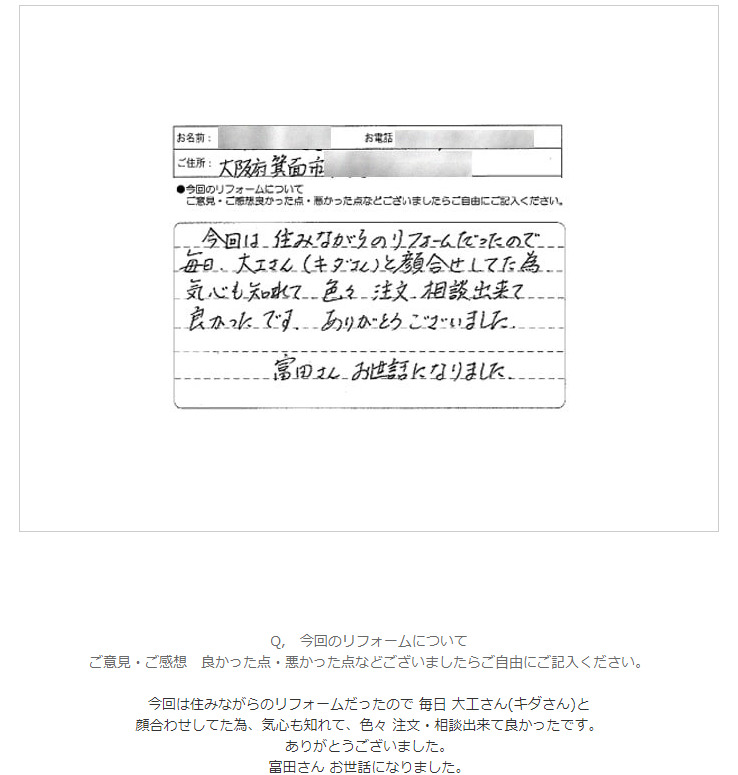 お名前：
お電話
ご住所：大阪府箕面市
●今回のリフォームについて
ご意見・ご感想良かった点・悪かった点などございましたらご自由にご記入ください。
今回は 住みながらのリフォームだったので
毎日、大工さん(キダさん)と顔合せしてた為
気心も知れて 色々 注文、相談出来て
良かったです、ありがとうございました、
富田さん お世話になりました、
Q,　今回のリフォームについて
ご意見・ご感想　良かった点・悪かった点などございましたらご自由にご記入ください。
今回は住みながらのリフォームだったので 毎日 大工さん(キダさん)と
顔合わせしてた為、気心も知れて、色々 注文・相談出来て良かったです。
ありがとうございました。
富田さん お世話になりました。